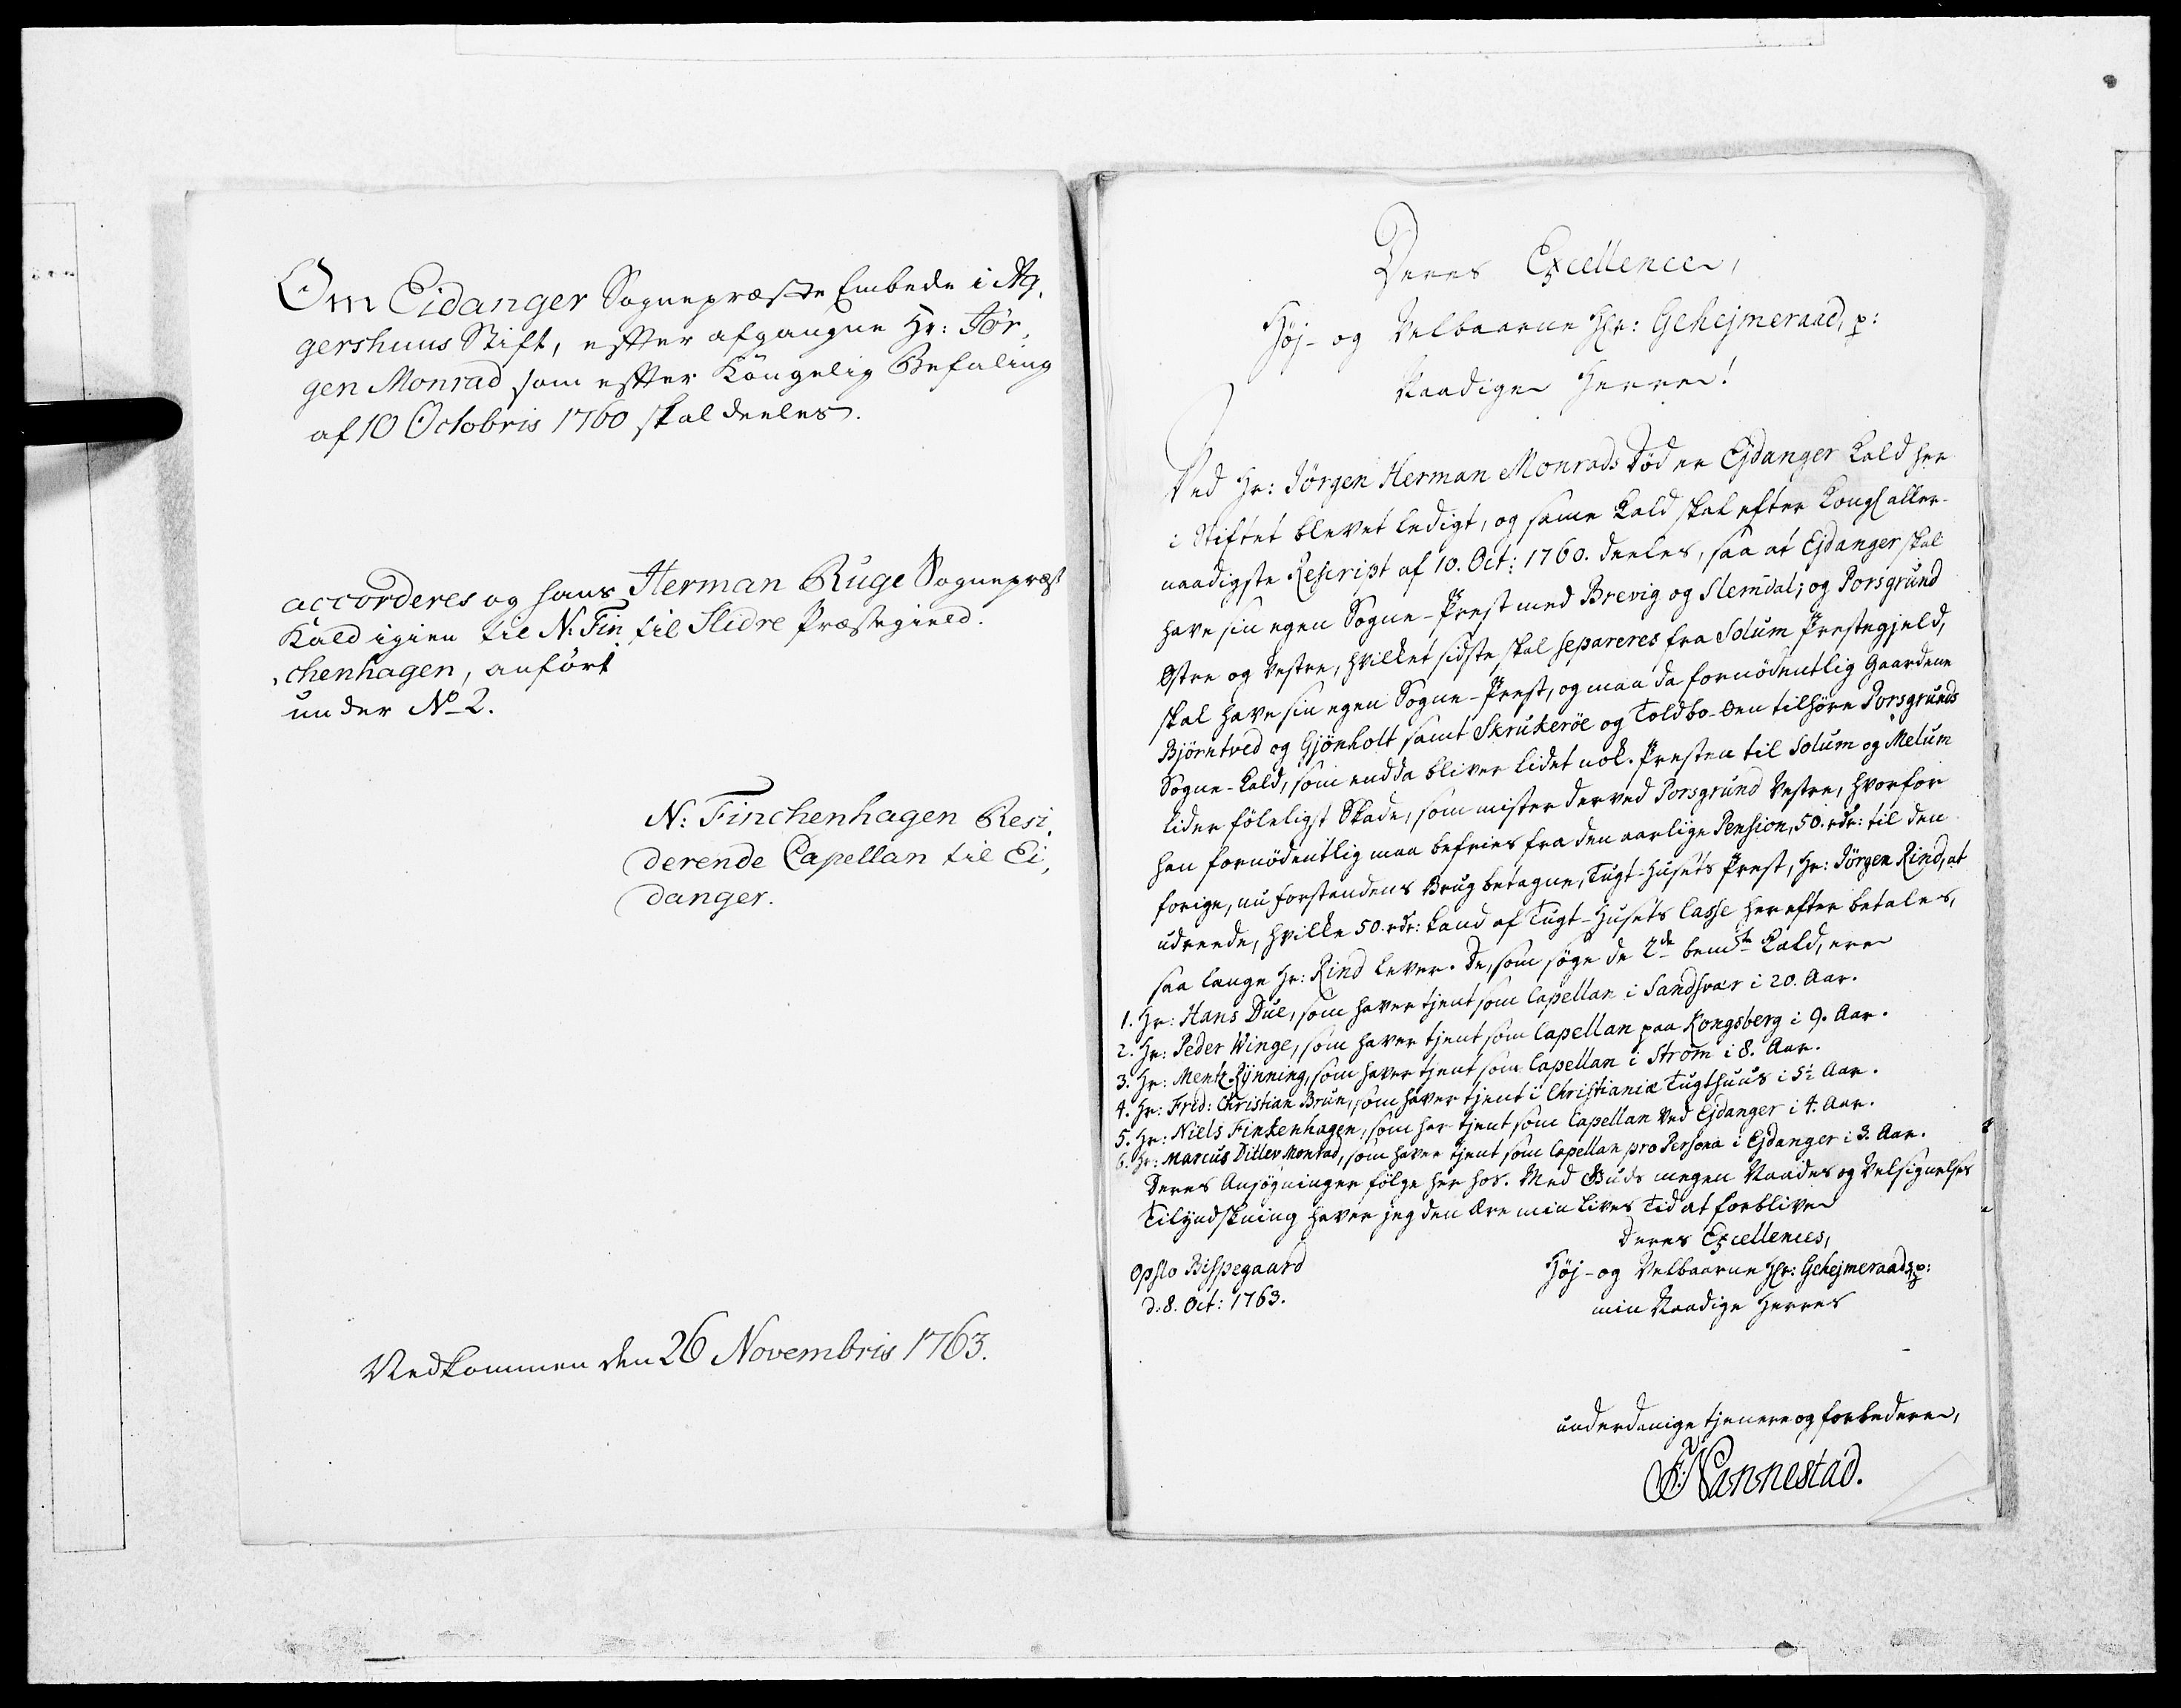 Om Eidanger Sognepræste Embede i Ag,
gershuus Stift, efter afgangne Hr: Jør,
gen Monrad som efter Kongelig Befaling
af 10 Octobris 1760 skal deeles.
accorderes og hans
Kald igien til N: Fin
chenhagen, anført
under No 2.
Herman Ruge Sognepræst
til Slidre Præstegield.
N: Finchenhagen Resi,
derende Capellan til Ei,
danger.
Vedkommen den 26 Novembris 1763.
Deres Excellence,
Høj- og Velbaarne Hr: Gehejmeraad, p:
Naadige Herre!
Ved Hr: Jörgen Herman Monrads Död er Ejdanger Kald her
i Stiftet blevet ledigt, og samme Kald skal efter Kongl aller-
naadigste Rescript af 10. Oct: 1760. deeles, saa at Ejdanger skal
have sin egen Sogne-Prest med Brevig og Slemdal; og Porsgrund
Östre og Vestre, hvilket sidste skal separeres fra Solum Prestegjeld,
skal have sin egen Sogne-Prest, og maa da fornödentlig Gaardene
Björntved og Gjönholt samt Skrukeröe og Toldbo-den tilhöre Porsgrunds
Sogne-Kald, som endda bliver lidet nok. Presten til Solum og Melum
lider föleligst Skade, som mister derved Porsgrund Vestre, hvorfor
han fornödentlig maa befries fra den aarlige Pension, 50. rdr: til den
forige, nu forstandens Brug betagne, Tugt-Husets Prest, Hr: Jörgen Rind, at
udreede, hvilke 50. rdr: kand af Tugt-Husets Casse herefter betales,
saa lange Hr: Rind lever. De, som söge de 2de bemte Kald, ere
1. Hr: Hans Due, som haver tjent som Capellan i Sandsvær i 20. Aar.
2. Hr: Peder Winge, som haver tjent som Capellan paa Kongsberg i 9. Aar.
3. Hr: Mentz Rynning, som haver tjent som Capellan i Strøm i 8. Aar.
4. Hr: Frid: Christian Brun, som haver tjent i Christianiæ Tugthuus i 5½ Aar.
5. Hr: Niels Finkenhagen, som har tjent som Capellan ved Ejdanger i 4. Aar.
6. Hr: Marcus Ditlev Monrad, som haver tjent som Capellan pro Persona i Ejdanger i 3. Aar.
Deres Ansögninger fölge her hos. Med Guds megen Naades og Velsignelses
Tilyndskning haver jeg den Ære min Lives Tid at forblive
Deres Excellences,
Høj- og Velbaarne Hr: Gehejmeraads, p:
min Naadige Herres
Opslo Bispegaard
d. 8. Oct: 1763.
underdanige tjenere og forbedere,
F: Nannestad.